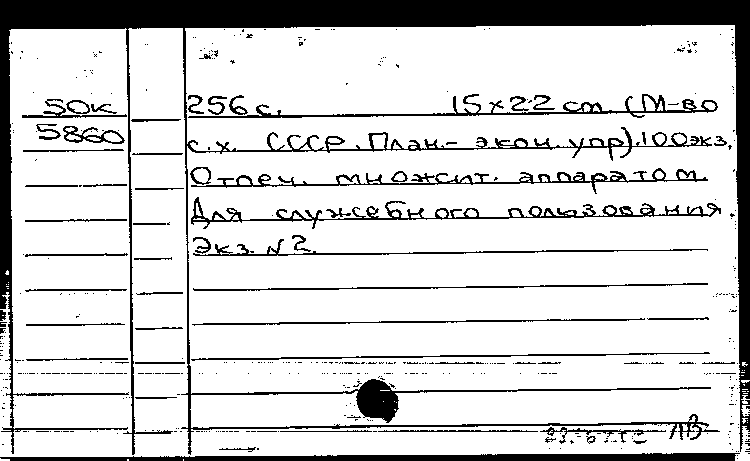 50к
5860
256 с. 15×22 cm. (М-во
с.х. СССР. План.- экон. упр). 100экз.
Отпеч. множит. аппаратом.
Для служебного пользования.
Экз. N 2.
ЛВ